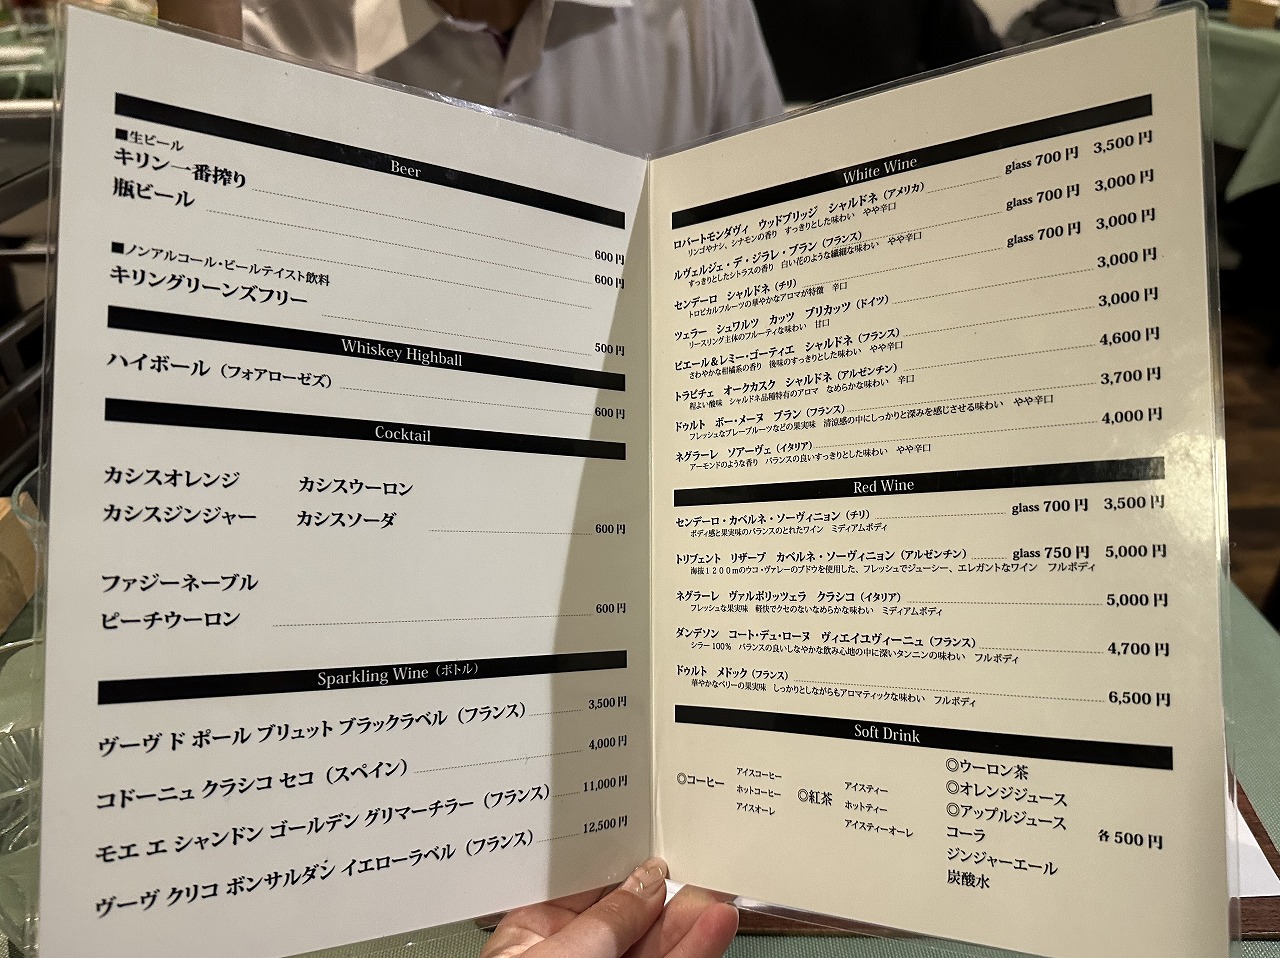 Beer
■生ビール
キリン一番搾り 600円
瓶ビール 600円
■ノンアルコール・ビールテイスト飲料
キリングリーンズフリー 500円
Whiskey Highball
ハイボール（フォアローゼズ） 600円
Cocktail
カシスオレンジ カシスウーロン
カシスジンジャー カシスソーダ 600円
ファジーネーブル
ピーチウーロン 600円
Sparkling Wine（ボトル）
ヴーヴ ド ポール ブリュット ブラックラベル（フランス） 3,500円
コドーニュ クラシコ セコ（スペイン） 4,000円
モエ エ シャンドン ゴールデン グリマーチラー（フランス） 11,000円
ヴーヴ クリコ ポンサルダン イエローラベル（フランス） 12,500円
White Wine
ロバートモンダヴィ ウッドブリッジ シャルドネ（アメリカ） glass 700円 3,500円
リンゴやナシ、シナモンの香り すっきりとした味わい やや辛口
ルヴェルジェ・デ・ジラレ・ブラン（フランス） glass 700円 3,000円
すっきりとしたシトラスの香り 白い花のような繊細な味わい やや辛口
センデーロ シャルドネ（チリ） glass 700円 3,000円
トロピカルフルーツの華やかなアロマが特徴 辛口
ツェラー シュワルツ カッツ ブリカッツ（ドイツ） 3,000円
リースリング主体のフルーティな味わい 甘口
ピエール＆レミー・ゴーティエ シャルドネ（フランス） 3,000円
さわやかな柑橘系の香り 後味のすっきりとした味わい やや辛口
トラピチェ オークカスク シャルドネ（アルゼンチン） 4,600円
程よい酸味 シャルドネ品種特有のアロマ なめらかな味わい 辛口
ドゥルト ボー・メーヌ ブラン（フランス） 3,700円
フレッシュなグレープルーツなどの果実味 清涼感の中にしっかりと深みを感じさせる味わい やや辛口
ネグラーレ ソアーヴェ（イタリア） 4,000円
アーモンドのような香り バランスの良いすっきりとした味わい やや辛口
Red Wine
センデーロ・カベルネ・ソーヴィニョン（チリ） glass 700円 3,500円
ボディ感と果実味のバランスのとれたワイン ミディアムボディ
トリブェント リザーブ カベルネ・ソーヴィニョン（アルゼンチン） glass 750円 5,000円
海抜1200mのウコ・ヴァレーのブドウを使用した、フレッシュでジューシー、エレガントなワイン フルボディ
ネグラーレ ヴァルポリッツェラ クラシコ（イタリア） 5,000円
フレッシュな果実味 軽快でクセのないなめらかな味わい ミディアムボディ
ダンデソン コート・デュ・ローヌ ヴィエイユヴィーニュ（フランス） 4,700円
シラー100% バランスの良いしなやかな飲み心地の中に深いタンニンの味わい フルボディ
ドゥルト メドック（フランス） 6,500円
華やかなベリーの果実味 しっかりとしながらもアロマティックな味わい フルボディ
Soft Drink
◎コーヒー
アイスコーヒー
ホットコーヒー
アイスオーレ
◎紅茶
アイスティー
ホットティー
アイスティーオーレ
◎ウーロン茶
◎オレンジジュース
◎アップルジュース
コーラ
ジンジャーエール
炭酸水
各500円